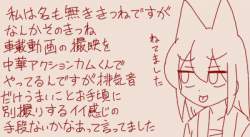 私は名も無ききつねですが
なんかそのきつね
車載動画の撮映を
中華アクションカムくんで
やってるんですが排気音
だけうまいことお手頃に
別撮りするイイ感じの
手段ないかなあって言ってました
ねてました